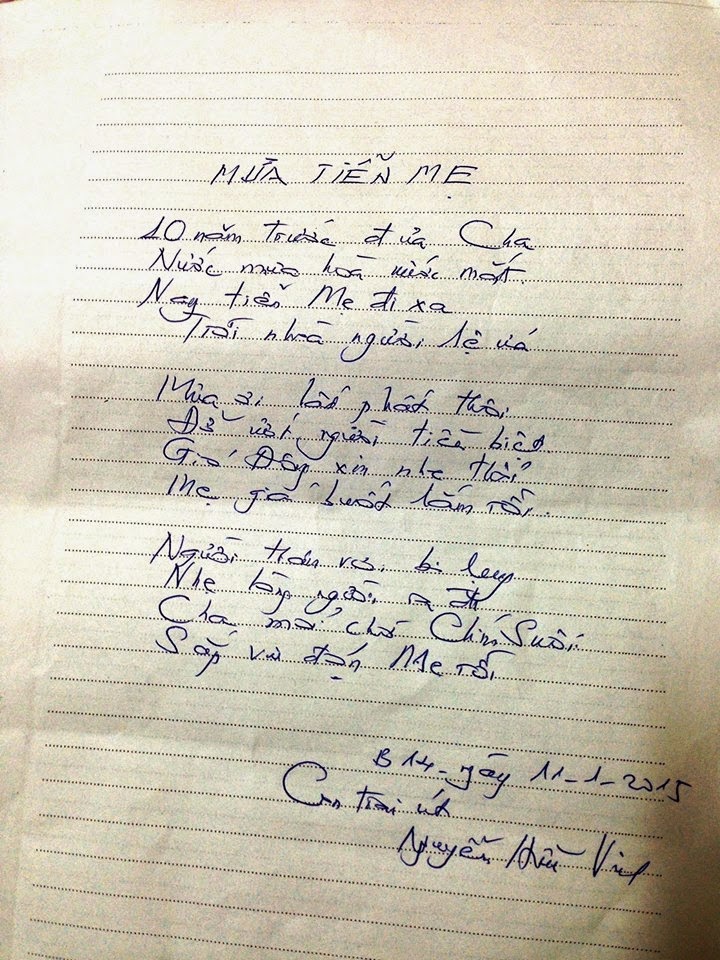 MƯA TIỄN MẸ
10 năm trước đưa Cha
Nước mưa hoà nước mắt.
Nay tiễn Mẹ đi xa
Trời nhoà người lệ
Mưa ơi lất phất thôi
Để với người tiễn biệt.
Gió Đông xin nhẹ thổi
Mẹ già buốt lắm rồi.
Người thân vơi bi lụy
Nhẹ lòng người ra đi
Cha mở chờ Chín Suối
Sắp vui đón Mẹ rồi
B14 - ngày 11-1-2015
Con trai út
Nguyễn Hữu Vinh